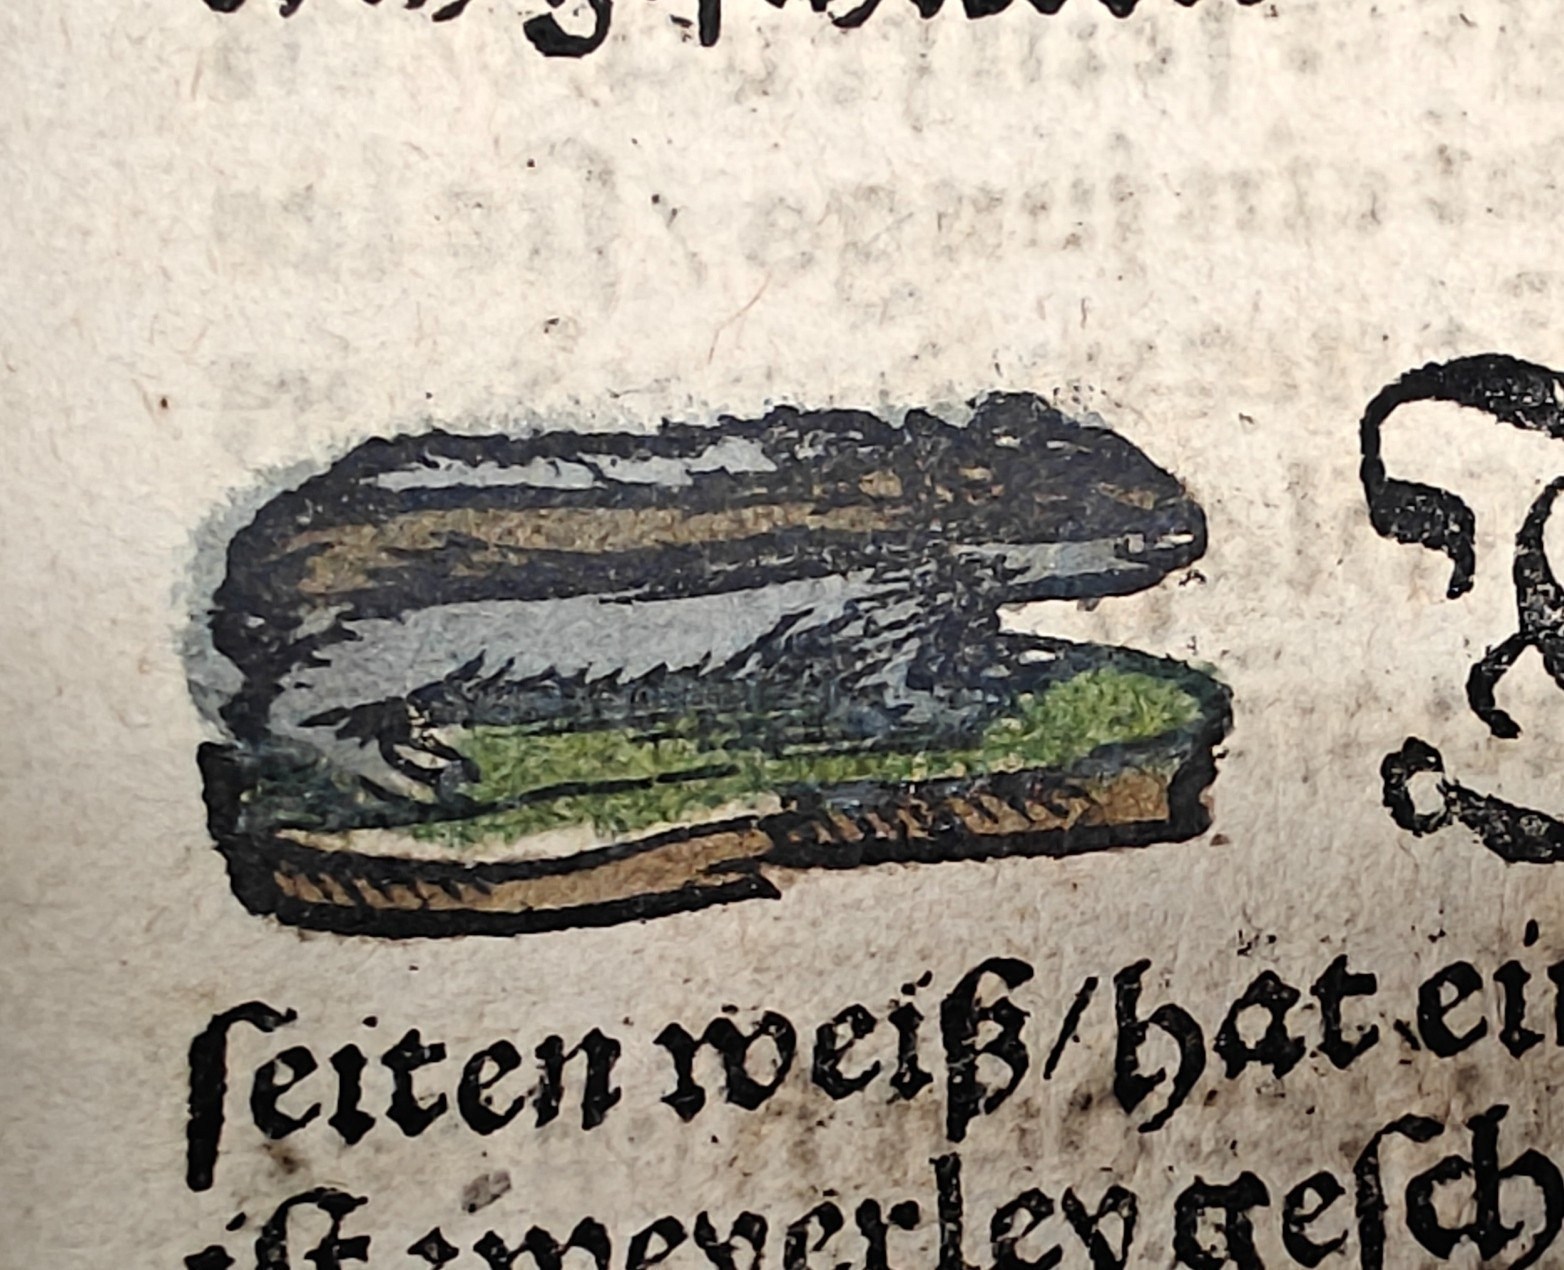 ſeiten weiß/hat ein
iſt zweyerley geſch